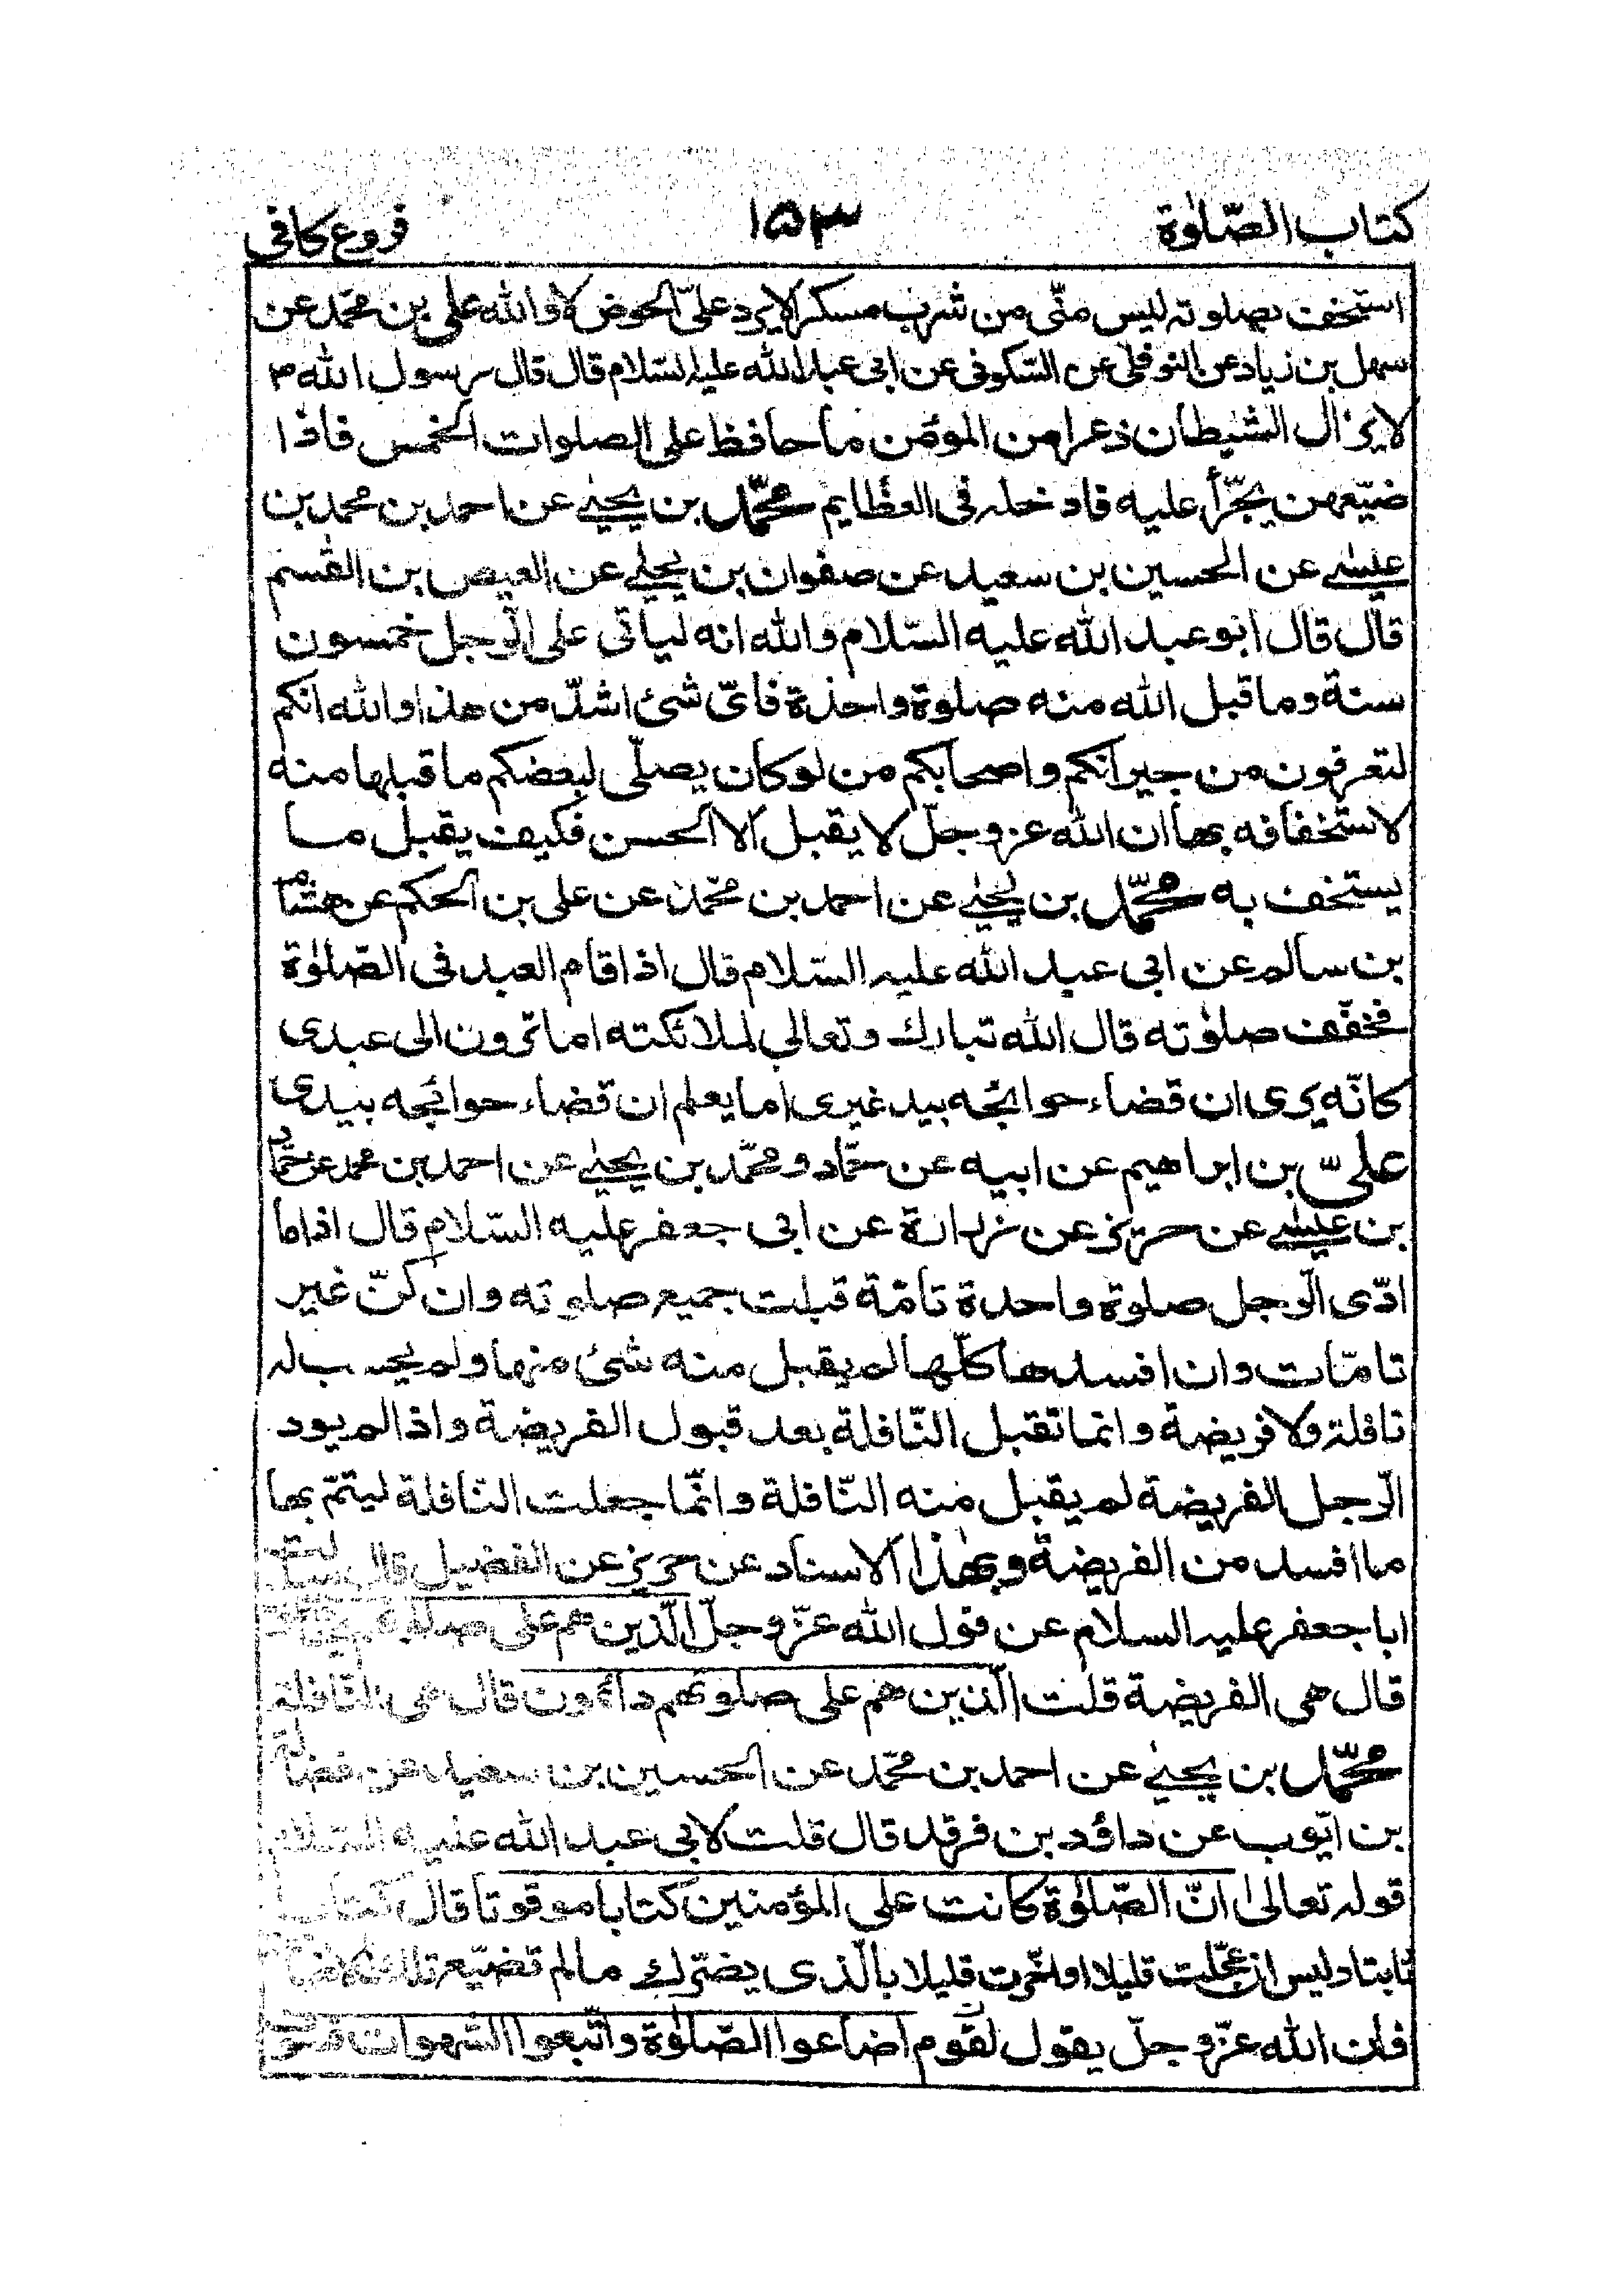 كتاب الصّلوٰة ١٥٣ فروع كافى
استخف بصلوته ليس منّى من شرب مسكرا لا يرد علىّ الحوض لا والله على بن محمّد عن
سهل بن زياد عن النوفلى عن السّكونى عن ابى عبد الله عليه السّلام قال قال رسول الله ص
لا يزال الشيطان ذعرا من المؤمن ما حافظ على الصلوات الخمس فاذا
ضيّعهن يجرّأ عليه فادخله فى العظايم محمّد بن يحيىٰ عن احمد بن محمد بن
عيسٰى عن الحسين بن سعيد عن صفوان بن يحيىٰ عن العيص بن القٰسم
قال قال ابو عبد الله عليه السّلام والله انه لياتى على الرّجل خمسون
سنة وما قبل الله منه صلوة واحدة فاىّ شئ اشدّ من هذا والله انكم
لتعرفون من جيرانكم واصحابكم من لو كان يصلّى لبعضكم ما قبلها منه
لاستخفافه بها ان الله عز وجلّ لا يقبل الا الحسن فكيف يقبل ما
يستخف به محمّد بن يحيىٰ عن احمد بن محمّد عن على بن الحكم عن هشام
بن سالم عن ابى عبد الله عليه السّلام قال اذا قام العبد فى الصّلوٰة
فخفّف صلوٰته قال الله تبارك وتعالى لملائكته اما ترون الى عبدى
كانّه يرى ان قضاء حوائجه بيد غيرى اما يعلم ان قضاء حوائجه بيدى
علىّ بن ابراهيم عن ابيه عن حمّاد ومحمّد بن يحيىٰ عن احمد بن محمد عن حمّاد
بن عيسٰى عن حريز عن زرارة عن ابى جعفر عليه السّلام قال اذا ما
ادّى الرّجل صلوة واحدة تامّة قبلت جميع صلوته وان كنّ غير
تامّات وان افسدها كلّها لم يقبل منه شئ منها ولم يحسب له
نافلة ولا فريضة وانما تقبل النّافلة بعد قبول الفريضة واذا لم يود
الرّجل الفريضة لم يقبل منه النّافلة وانّما جعلت النّافلة ليتمّ بها
ما افسد من الفريضة وبهٰذا الاسناد عن حريز عن الفضيل قال سئلت
ابا جعفر عليه السلام عن قول الله عزّ وجلّ الّذين هم على
قال هى الفريضة قلت الّذين هم على صلوتهم دائمون قال هى النّافلة
محمّد بن يحيىٰ عن احمد بن محمّد عن الحسين بن سعيد عن فضالة
بن ايّوب عن داؤد بن فرقد قال قلت لابى عبد الله عليه السّلام
قوله تعالىٰ انّ الصّلوٰة كانت على المؤمنين كتابا موقوتا قال كتابا
ثابتا وليس ان عجّلت قليلا او اخّرت قليلا بالّذى يضرّك ما لم تضيّع تلك الاضاعة
فان الله عزّ وجلّ يقول لقوم اضاعوا الصّلوٰة واتّبعوا الشهوات فسوف